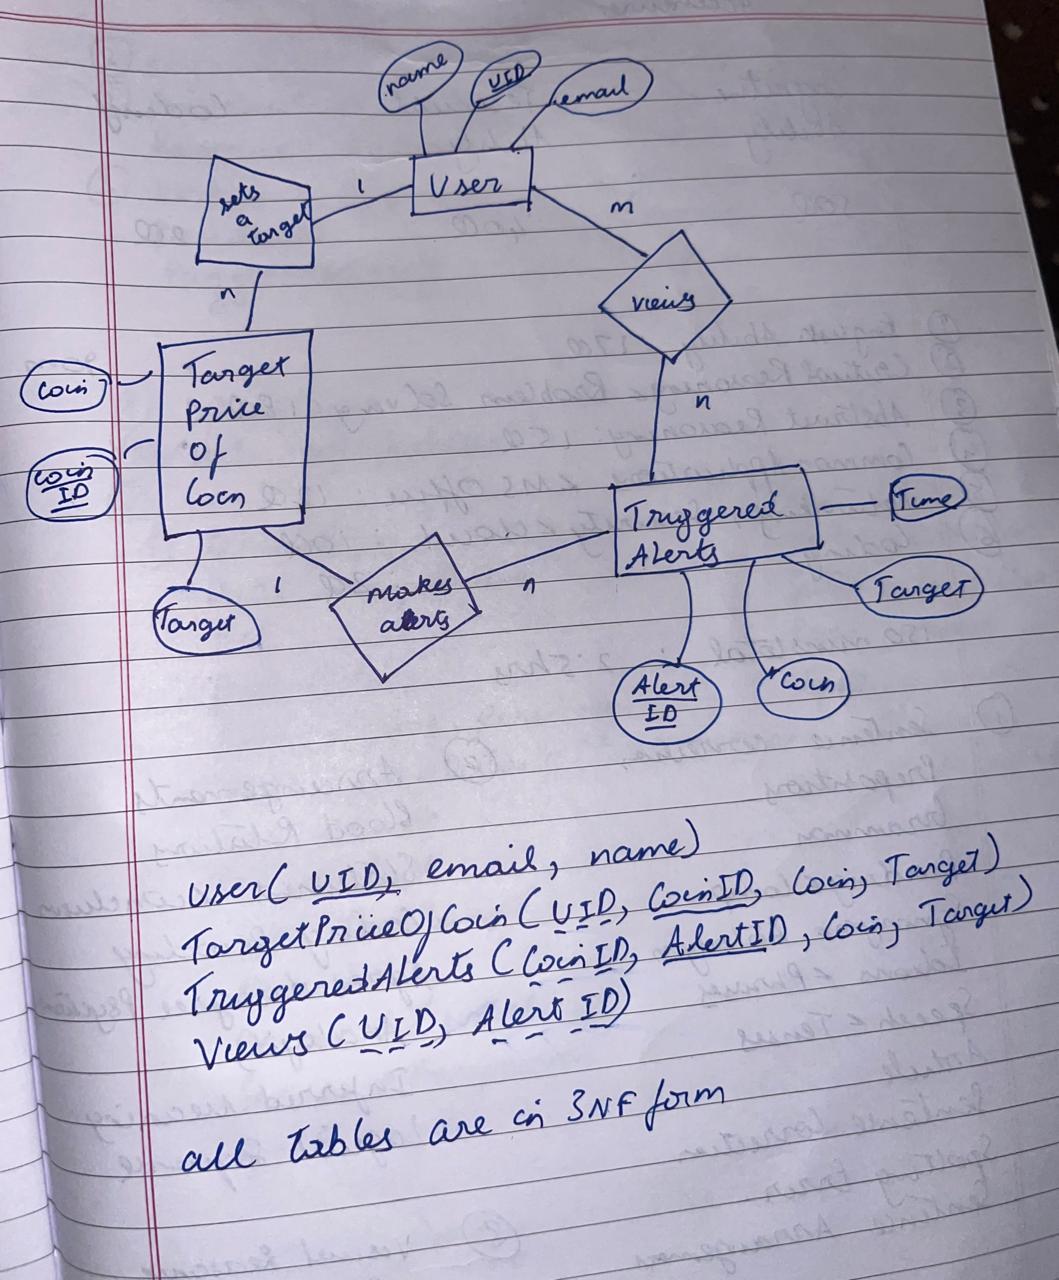 name
UID
email
User
sets
a
target
1
m
n
views
n
Coin
Target
Price
Of
Coin
Coin
ID
Target
1
Makes
alerts
n
Triggered
Alerts
Time
Target
Alert
ID
Coin
User( UID, email, name)
TargetPriceOfCoin (UID, CoinID, Coin, Target)
TriggeredAlerts (CoinID, AlertID, Coin, Target)
Views (UID, Alert ID)
all tables are in 3NF form